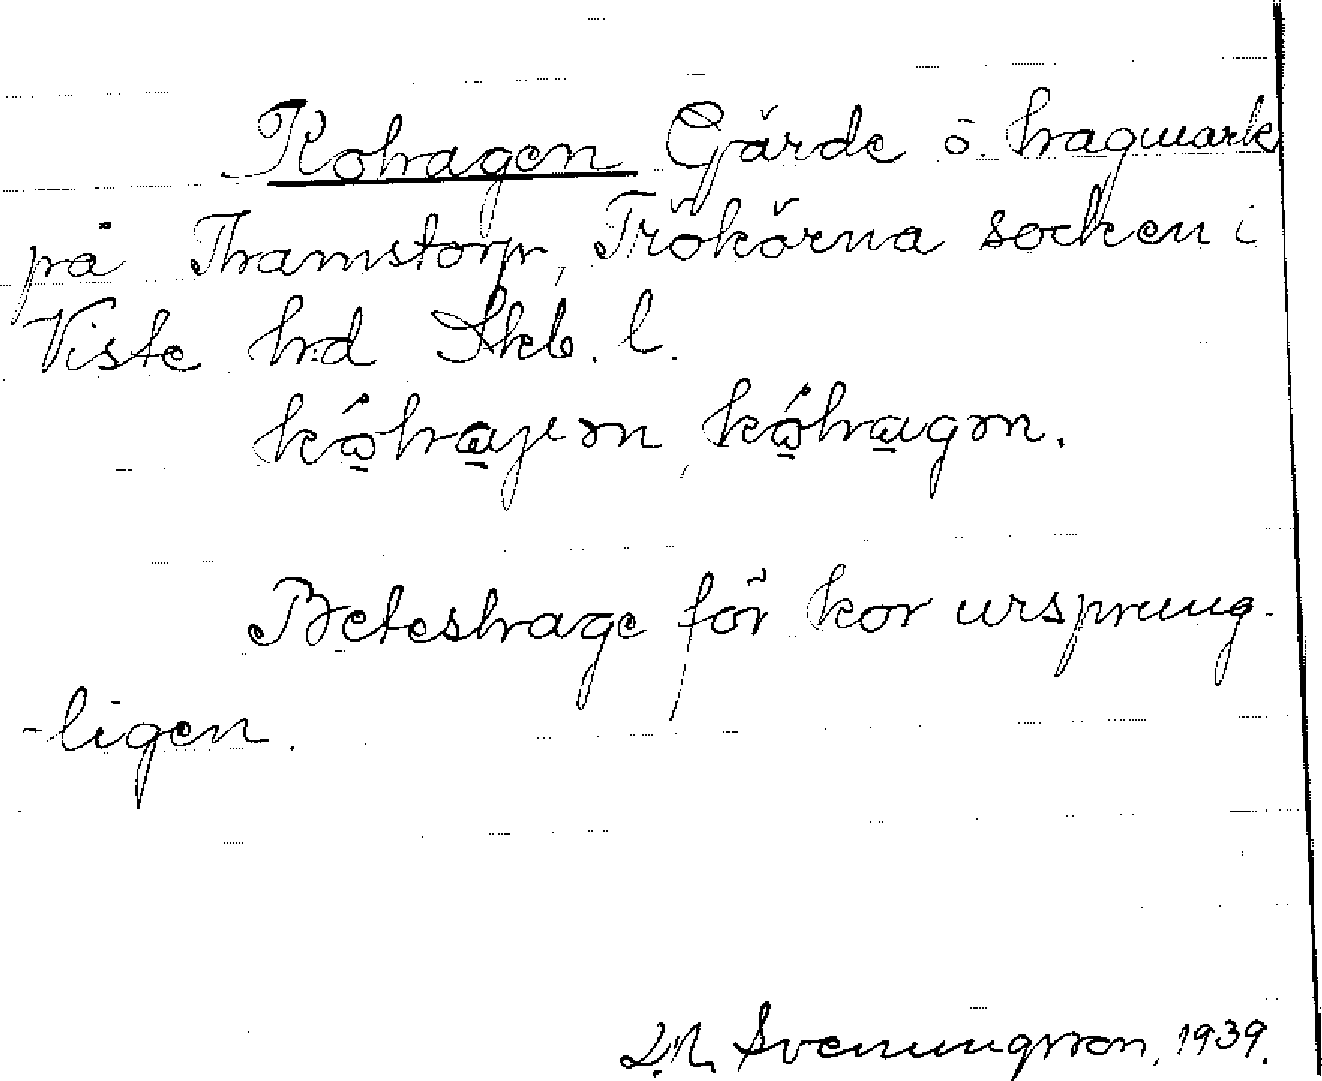 Kohagen Gärde o. hagmark
på Thamstorp, Trökörna socken i
Viste hd Skb. l.
kóhajen, kóhagen.
Beteshage för kor ursprung-
-ligen.
Svenungsson, 1939.